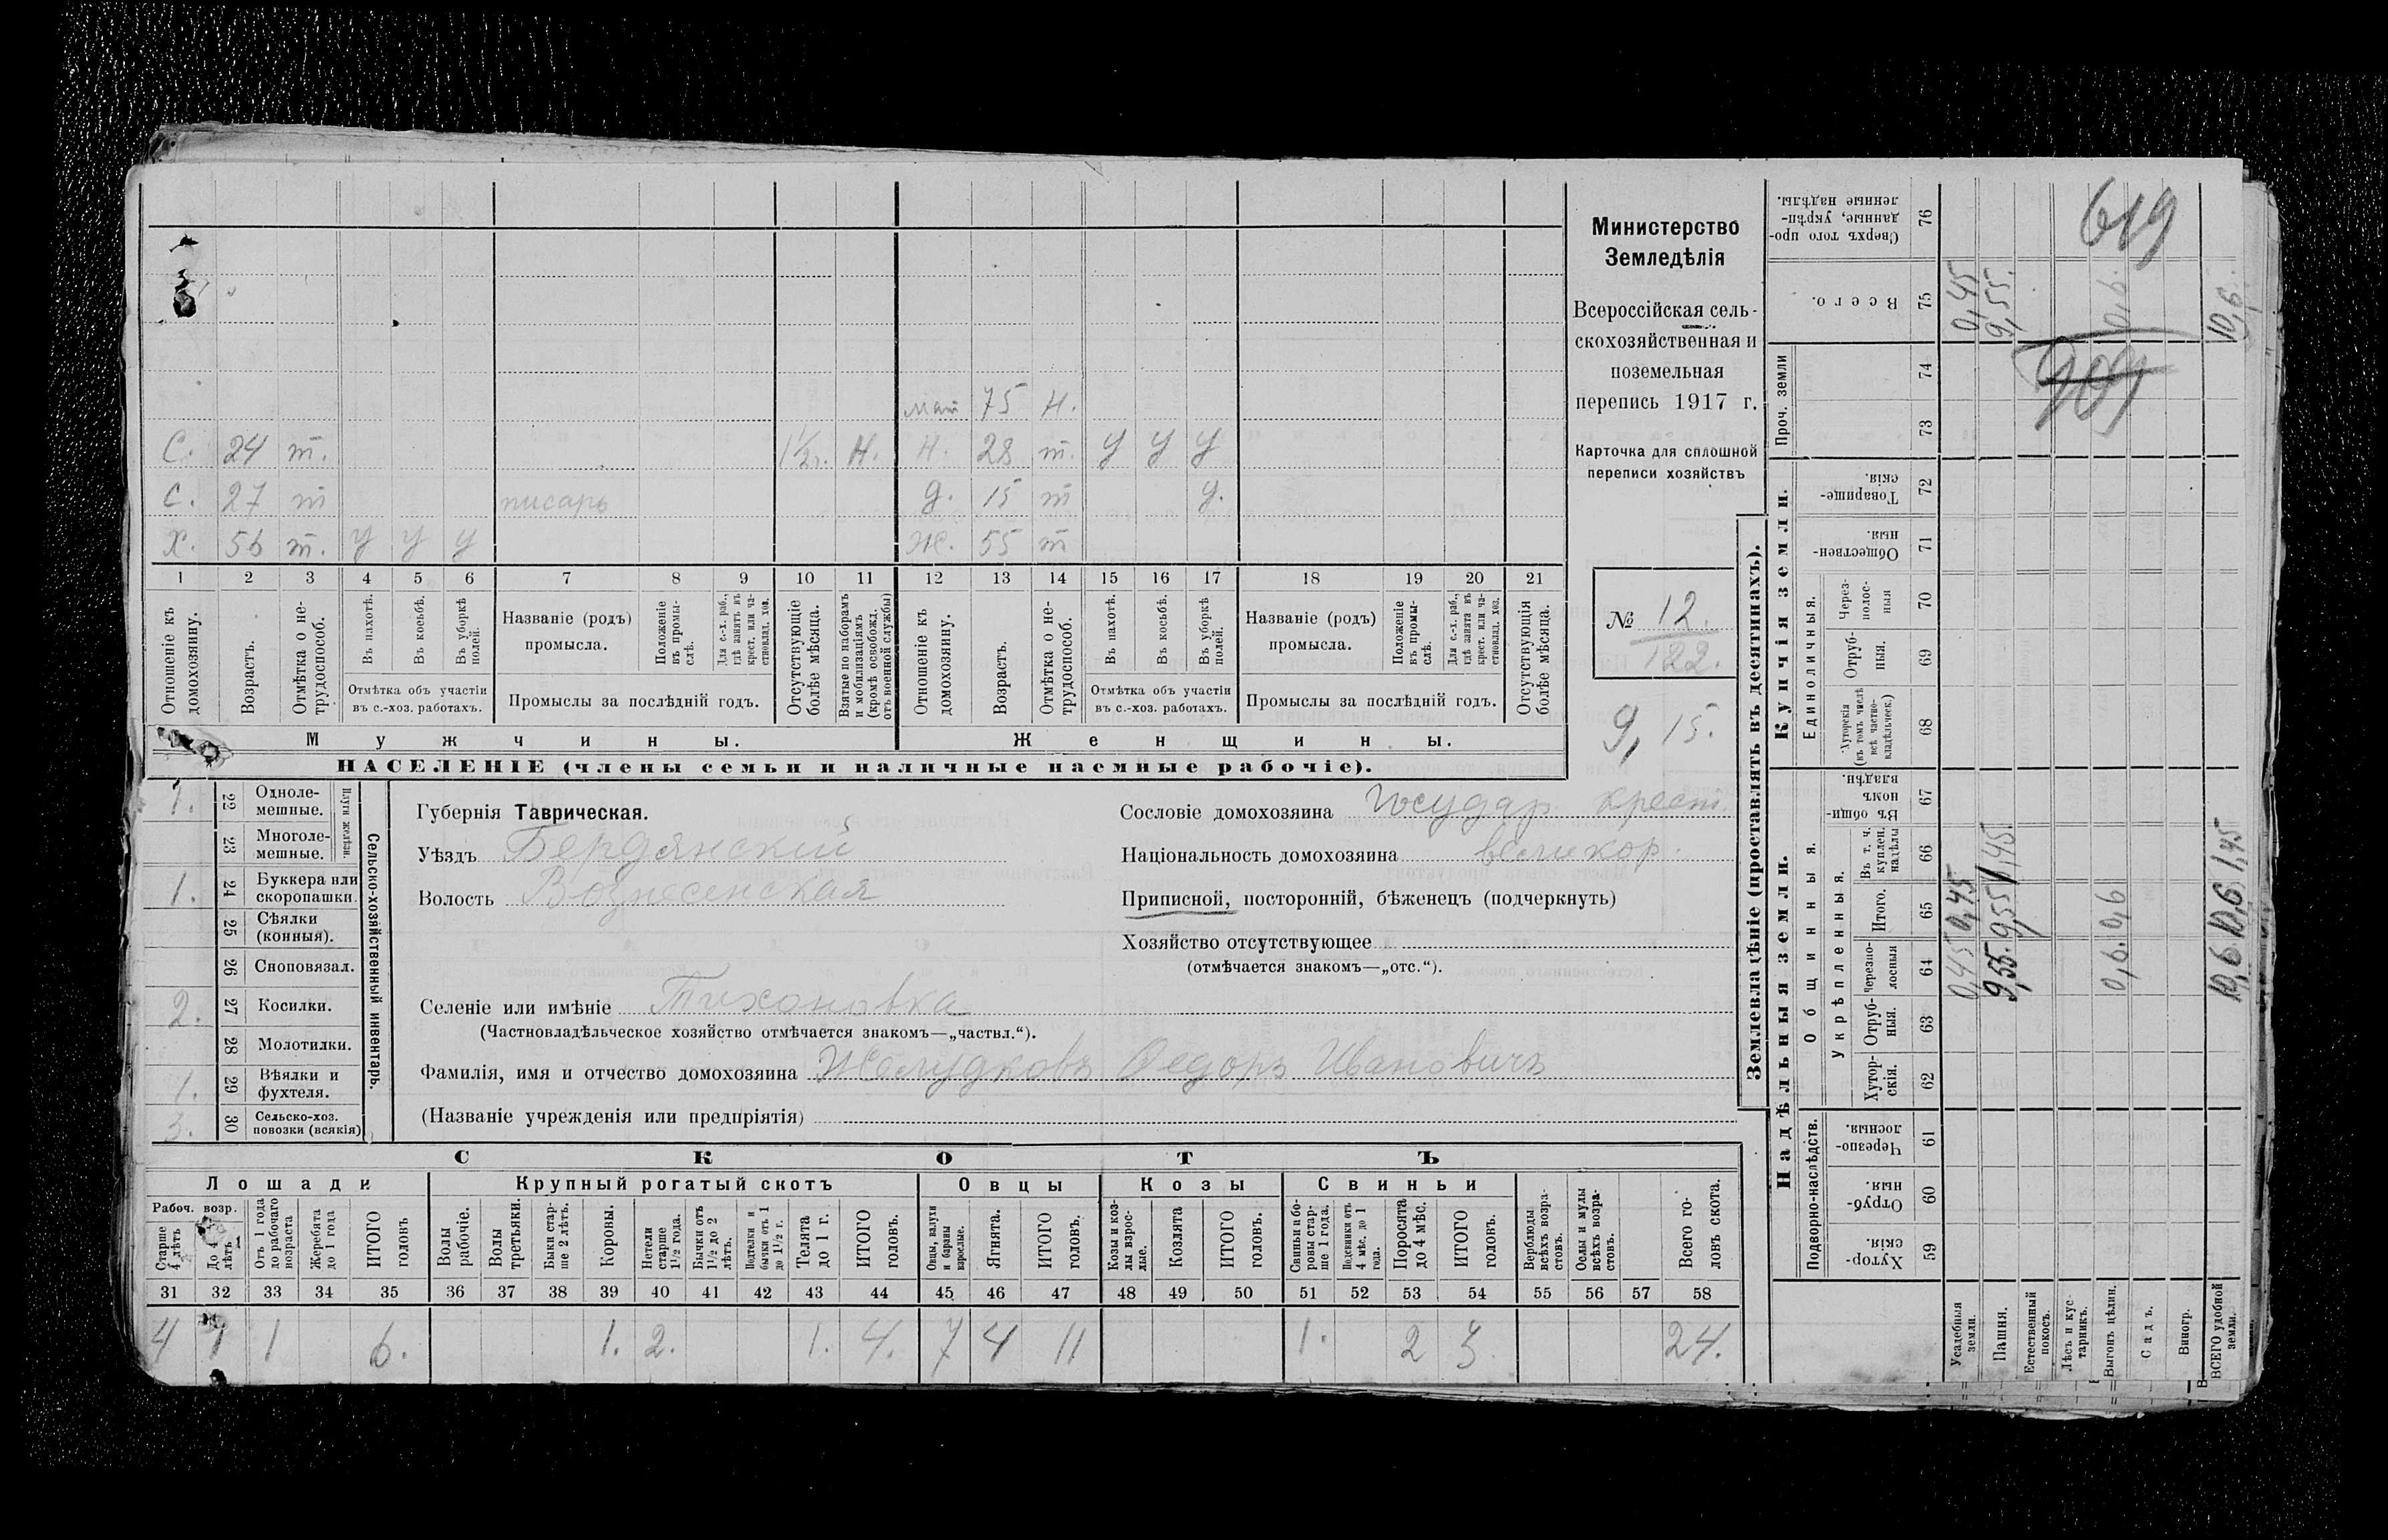 май 75 н.
С. 24 т. 1½. Н. Н. 28 т. У У У
С. 27 т писарь д. 15 т у.
Х. 56 т. У У У Ж. 55 т
1 2 3 4 5 6 7 8 9 10 11 12 13 14 15 16 17 18 19 20 21
Отношеніе къ домохозяину.
Возрастъ.
Отмѣтка о не-трудоспособ.
Въ пахотѣ.
Въ косьбѣ.
Въ уборкѣ полей.
Отмѣтка объ участіи въ с.-хоз. работахъ.
Названіе (родъ) промысла.
Положеніе въ промы-слѣ.
Для с.-х. раб., гдѣ занятъ въ крест. или ча-стновлад. хоз.
Промыслы за послѣдній годъ.
Отсутствующіе болѣе мѣсяца.
Взятые по наборамъ и мобилизаціямъ (кромѣ освобожд. отъ военной службы)
Отношеніе къ домохозяину.
Возрастъ.
Отмѣтка о не-трудоспособ.
Въ пахотѣ.
Въ косьбѣ.
Въ уборкѣ полей.
Отмѣтка объ участіи въ с.-хоз. работахъ.
Названіе (родъ) промысла.
Положеніе въ промы-слѣ.
Для с.-х. раб., гдѣ занята въ крест. или ча-стновлад. хоз.
Промыслы за послѣдній годъ.
Отсутствующія болѣе мѣсяца.
Мужчины. Женщины.
НАСЕЛЕНІЕ (члены семьи и наличные наемные рабочіе).
Министерство
Земледѣлія
Всероссійская сель-
скохозяйственная и
поземельная
перепись 1917 г.
Карточка для сплошной
переписи хозяйствъ
№ 12.
122.
9,15.
1. 22 Одноле-мешные.
23 Многоле-мешные.
Плуги желѣзн.
1. 24 Буккера или скоропашки.
25 Сѣялки (конныя).
26 Сноповязал.
2. 27 Косилки.
28 Молотилки.
1. 29 Вѣялки и фухтеля.
3. 30 Сельско-хоз. повозки (всякія)
Сельско-хозяйственный инвентарь.
Губернія Таврическая.
Уѣздъ Бердянскій
Волость Вознесенская
Селеніе или имѣніе Тихоновка
(Частновладѣльческое хозяйство отмѣчается знакомъ—„частвл.“).
Фамилія, имя и отчество домохозяина Желудковъ Ѳедоръ Ивановичъ
(Названіе учрежденія или предпріятія)
Сословіе домохозяина Государ. крест.
Національность домохозяина великор.
Приписной, посторонній, бѣженецъ (подчеркнуть)
Хозяйство отсутствующее
(отмѣчается знакомъ—„отс.“).
СКОТЪ
Лошади Крупный рогатый скотъ Овцы Козы Свиньи
Рабоч. возр.
Старше 4 лѣтъ
До 4 лѣтъ
Отъ 1 года до рабочаго возраста
Жеребята до 1 года
ИТОГО головъ
Волы рабочіе.
Волы третьяки.
Быки стар-ше 2 лѣтъ.
Коровы.
Нетели старше 1½ года.
Бычки отъ 1½ до 2 лѣтъ.
Подтелки и бычки отъ 1 до 1½ г.
Телята до 1 г.
ИТОГО головъ.
Овцы, валухи и бараны взрослые.
Ягнята.
ИТОГО головъ.
Козы и коз-лы взрос-лые.
Козлята
ИТОГО головъ.
Свиньи и бо-ровы стар-ше 1 года.
Подсвинки отъ 4 мѣс. до 1 года.
Поросята до 4 мѣс.
ИТОГО головъ.
Верблюды всѣхъ возра-стовъ.
Ослы и мулы всѣхъ возра-стовъ.
Всего го-ловъ скота.
31 32 33 34 35 36 37 38 39 40 41 42 43 44 45 46 47 48 49 50 51 52 53 54 55 56 57 58
4 1 1 6. 1. 2. 1. 4. 7 4 11 1. 2 3 24.
Землевладѣніе (проставлять въ десятинахъ).
Надѣльныя земли. Купчія земли.
Проч. земли
Подворно-наслѣдств.
Общинныя.
Укрѣпленныя.
Единоличныя.
Сверхъ того про-данные, укрѣп-ленные надѣлы. 76
Всего. 75
74
73
Товарище-скія. 72
Обществен-ныя. 71
Через-полос-ныя 70
Отруб-ныя. 69
Хуторскія (въ томъ числѣ всѣ частно-владѣльческ.) 68
Въ общин-номъ владѣн. 67
Въ т. ч. куплен. надѣлы 66
Итого. 65
Черезпо-лосныя 64
Отруб-ныя. 63
Хутор-скія. 62
Черезпо-лосныя. 61
Отруб-ныя. 60
Хутор-скія. 59
Усадебныя земли. 0,45 0,45 0,45
Пашня. 9,55. 9,55 1,45. 9,55.
Естественный покосъ.
Лѣсъ и кус-тарникъ.
Выгонъ цѣлин. 0,6. 0,6 0,6.
Садъ.
Виногр.
ВСЕГО удобной земли. 10,6 10,6 1,45 10,6.
619
909